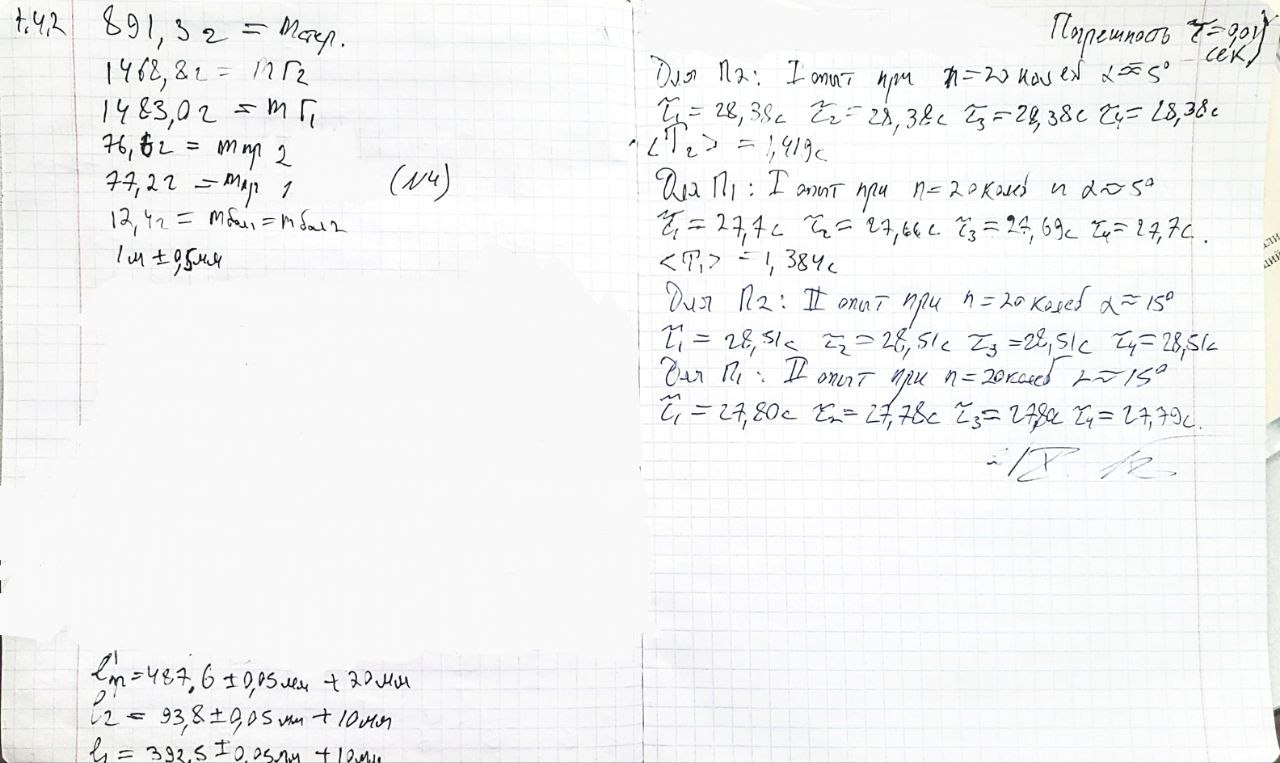 1.4.2
891,3 г = mстер.
1468,8г = mГ2
1483,0г = mГ1
76,6г = mпр 2
77,2г = mпр 1 (N4)
12,4г = mбол1 = mбол2
1м ± 0,5мм
l'п = 487,6 ± 0,05мм + 20мм
l2 = 93,8 ± 0,05мм + 10мм
l1 = 392,5 ± 0,05мм + 10мм
Погрешность τ = 0,01
сек
Для П2: I опыт при n = 20 колеб α ≈ 5°
τ1 = 28,38с τ2 = 28,38с τ3 = 28,38с τ4 = 28,38с
<T2> = 1,419с
Для П1: I опыт при n = 20 колеб и α ≈ 5°
τ1 = 27,7с τ2 = 27,66с τ3 = 27,69с τ4 = 27,7с.
<T1> = 1,384с
Для П2: II опыт при n = 20 колеб α ≈ 15°
τ1 = 28,51с τ2 = 28,51с τ3 = 28,51с τ4 = 28,51с
Для П1: II опыт при n = 20 колеб α ≈ 15°
τ1 = 27,80с τ2 = 27,78с τ3 = 27,8с τ4 = 27,79с.